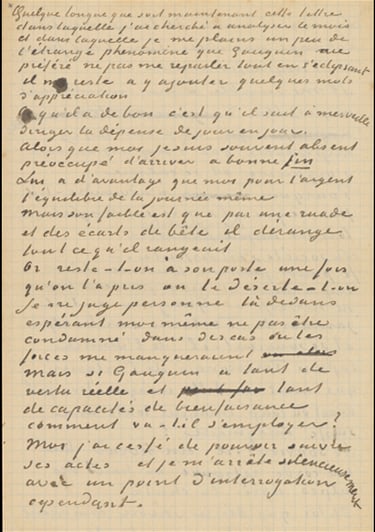 Quelque longue que soit maintenant cette lettre
dans laquelle j'ai cherché à analyser le mois
et dans laquelle je me plains un peu de
l'étrange phénomène que Gauguin aie
préféré ne pas me reparler tout en s'éclipsant
il me reste a y ajouter quelques mots
d'appréciation
Ce qu'il a de bon c'est qu'il sait à merveille
diriger la dépense de jour en jour.
Alors que moi je suis souvent absent
préoccupé d'arriver a bonne fin
Lui a d'avantage que moi pour l'argent
l'équilibre de la journée même
Mais son faible est que par une ruade
et des écarts de bête il dérange
tout ce qu'il rangeait
Or reste-t-on à son poste une fois
qu'on l'a pris ou le déserte-t-on
Je ne juge personne là dedans
espérant moi même ne pas être
condamné dans des cas ou les
forces me manqueraient
Mais si Gauguin a tant de
vertu réelle et tant
de capacités de bienfaisance
comment va-t-il s'employer?
Moi j'ai cessé de pouvoir suivre
ses actes et je m'arrête silencieusement
avec un point d'interrogation
cependant.